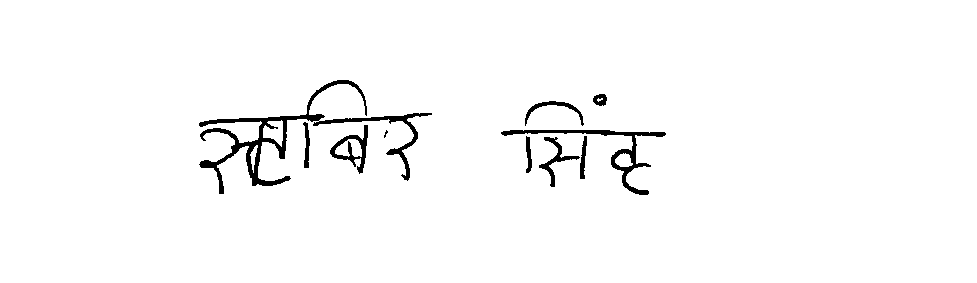 सहबिर सिंह